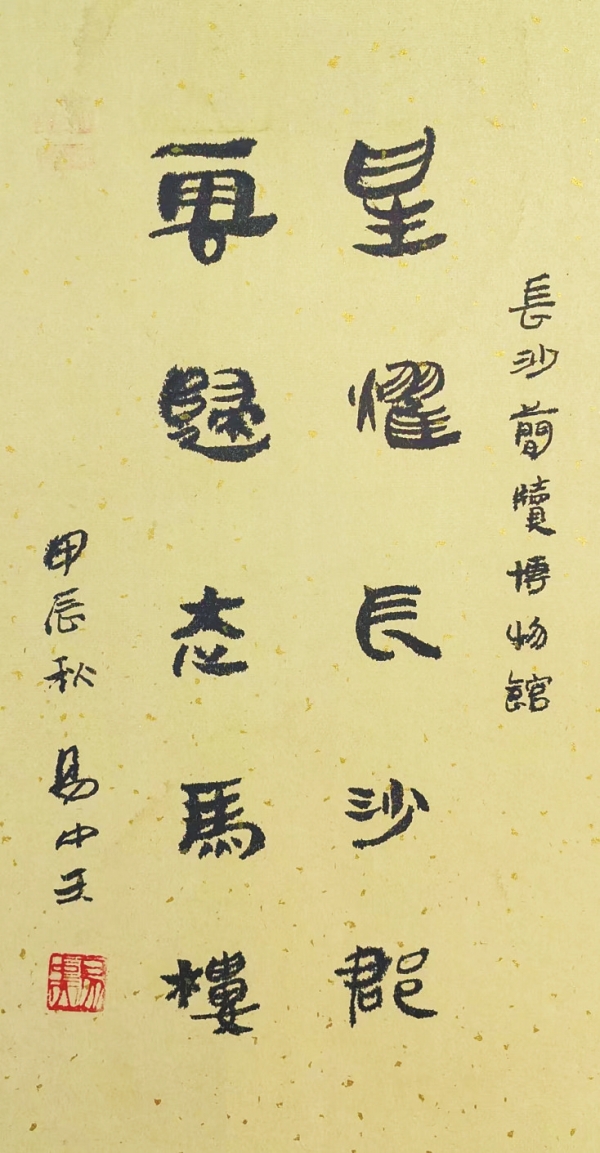 長沙簡牘博物館
星燿長沙郡
歸走馬樓
甲辰秋 易中天